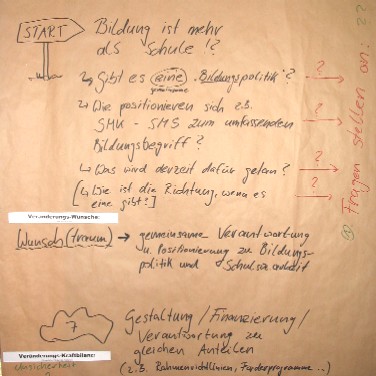 START
Bildung ist mehr
als Schule!?
↳ Gibt es (eine) "Bildungspolitik"?
gemeinsame
↳ Wie positionieren sich z.B.
SMK - SMS zum umfassenden
Bildungsbegriff?
↳ Was wird derzeit dafür getan?
[↳ Wie ist die Richtung, wenn es
eine gibt?]
?
?
?
?
Fragen stellen an: ??
Veränderungs-Wünsche:
Wunsch(traum) → gemeinsame Verantwortung
u. Positionierung zu Bildungs-
politik und Schulsozarbeit
?
Gestaltung / Finanzierung /
Verantwortung zu
gleichen Anteilen
(z.B. Rahmenrichtlinien, Förderprogramme...)
Veränderungs-Kraftbilanz:
Unsicherheit